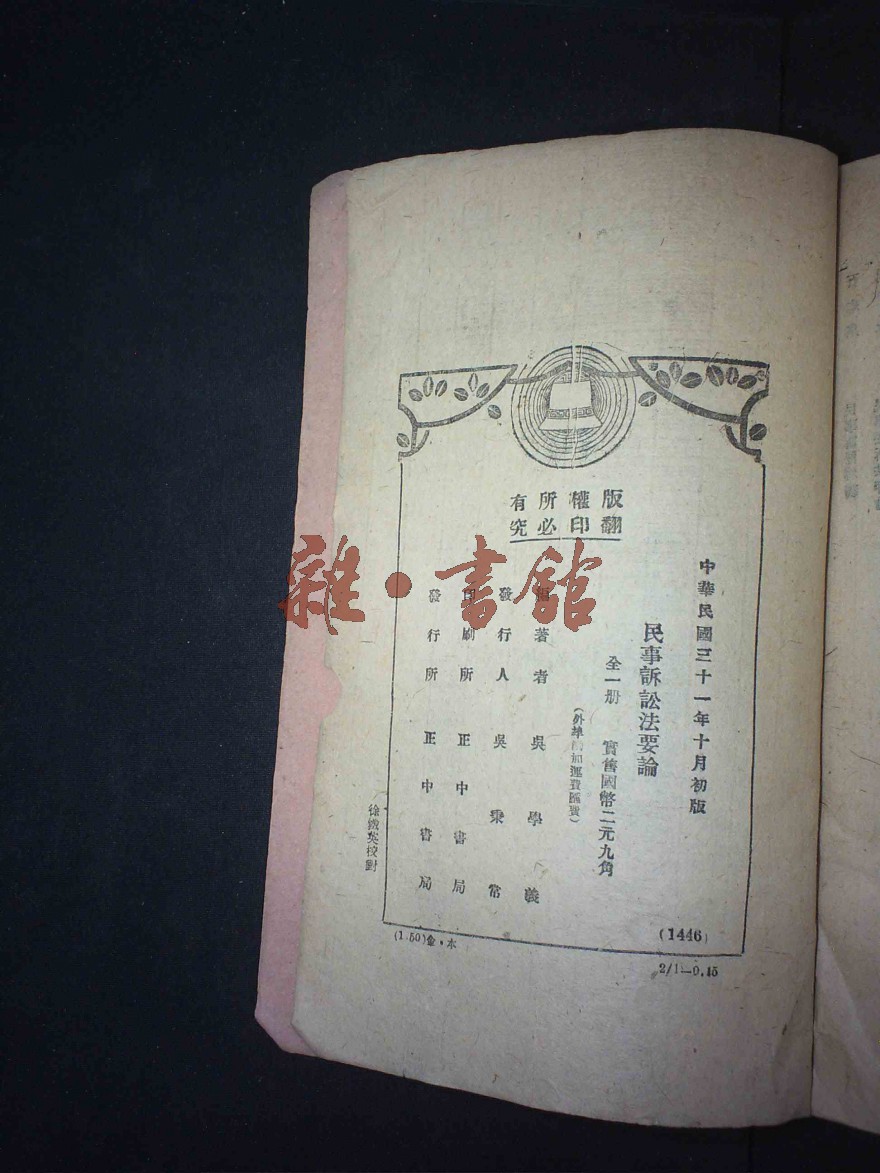 版權所有
翻印必究
中華民國三十一年十月初版
民事訴訟法要論
全一册 實售國幣二元九角
(外埠加運費匯費)
編著者 吳學義
發行人 吳秉常
印刷所 正中書局
發行所 正中書局
校對
(1446)
(1.50)金·本
2/1—0.15
雜·書館